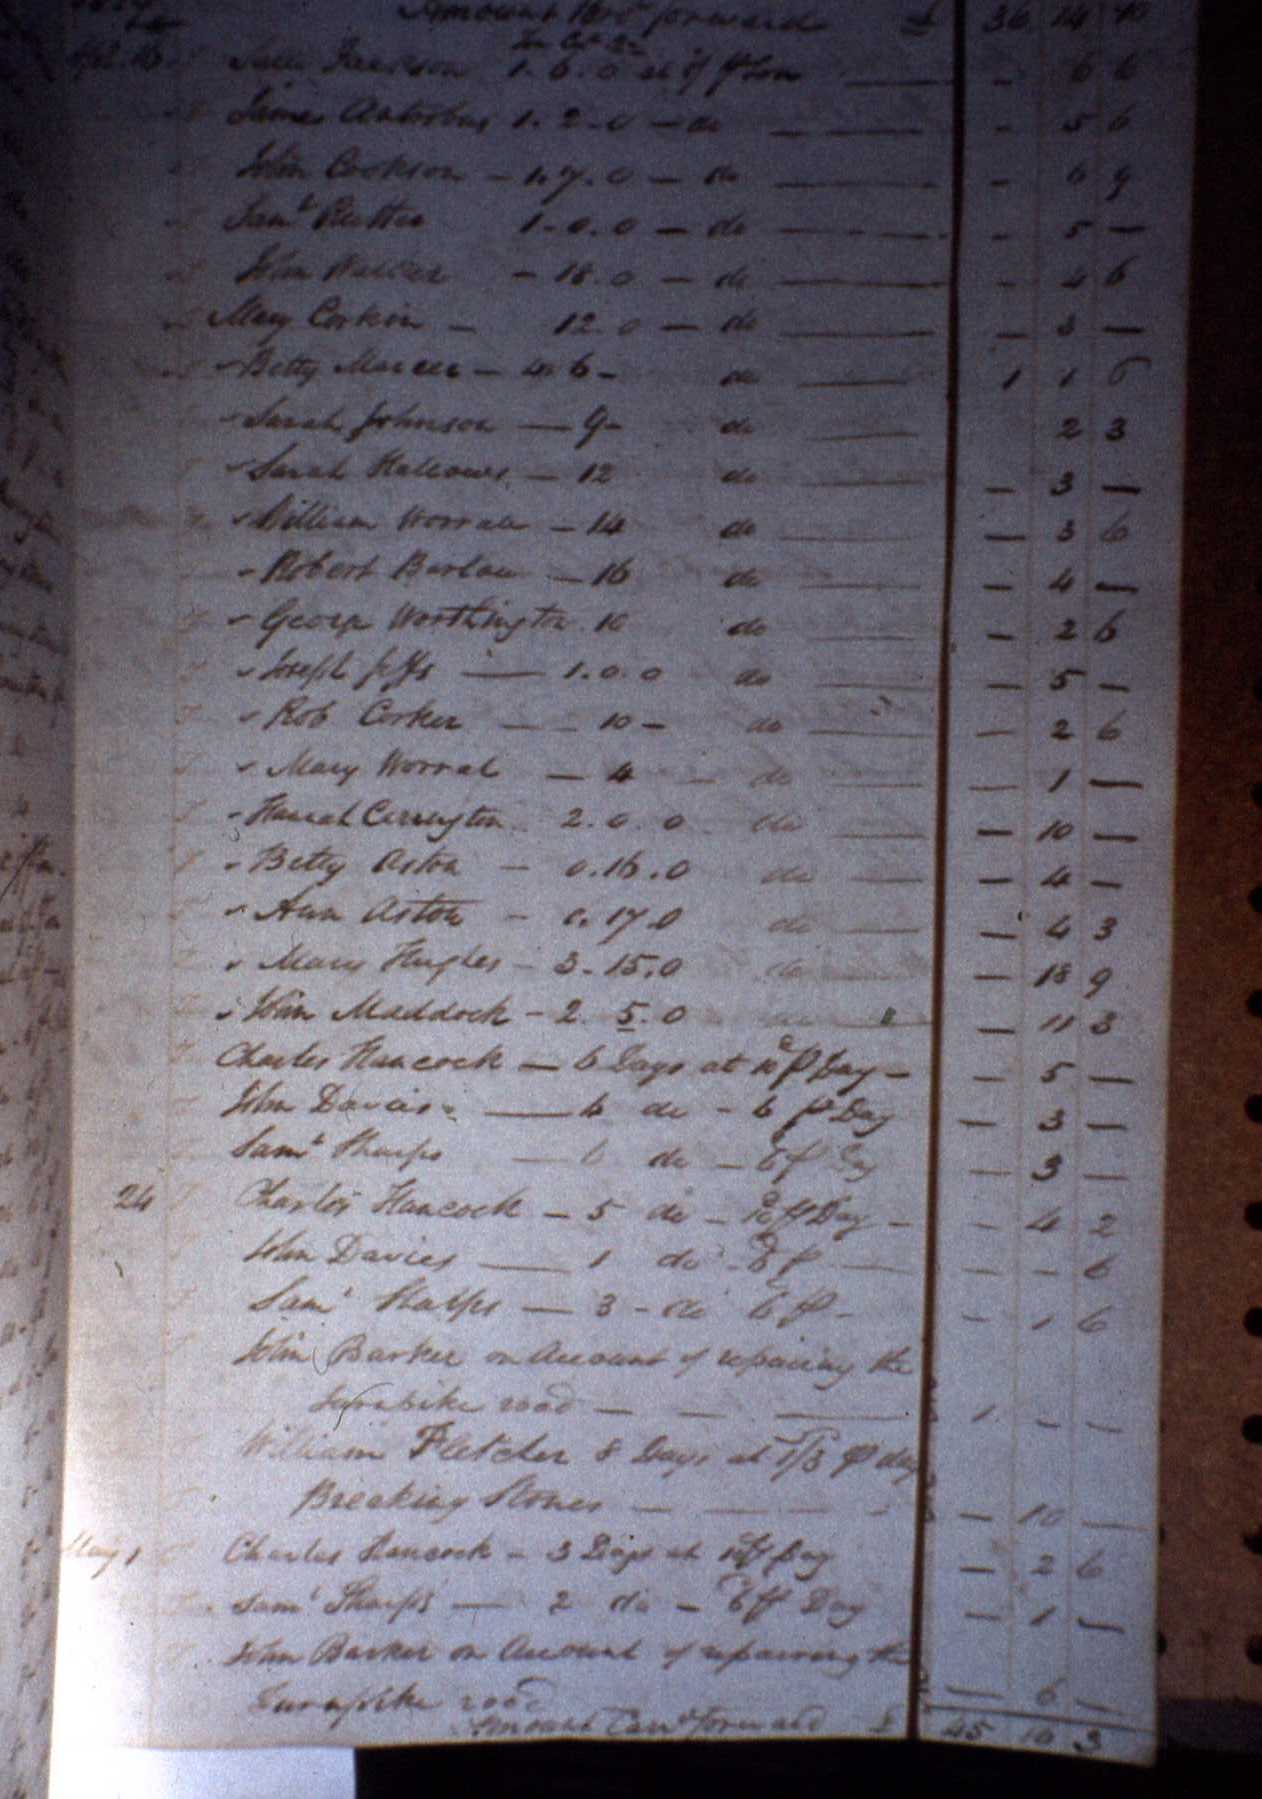 Amount Bro.t forward £ 36 14
1. 6. 0 at 5/ p Ton - 6 6
James Antrobus 1. 2. 0 - do - 5 6
John Cookson - 1. 7. 0 - do - 6 9
Sam.l Rutter 1. 0. 0 - do - 5 -
John Walker - 18. 0 - do - 4 6
Mary Corkin - 12. 0 - do - 3 -
Betty Mercer - 4. 6 - do 1 1 6
Sarah Johnson - 9 - do 2 3
Sarah Hallows - 12 do - 3 -
William Worrall - 14 do - 3 6
Robert Barlow - 16 do - 4 -
George Worthington 10 do - 2 6
Joseph Jeffs - 1. 0. 0 do - 5 -
Rob Corker - 10 - do - 2 6
Mary Worral - 4 - do - 1 -
Hannah Carrington 2. 0. 0 do - 10 -
Betty Aston - 0. 16. 0 do - 4 -
Ann Aston - 0. 17. 0 do - 4 3
Mary Hughes - 3. 15. 0 do - 18 9
John Maddock - 2. 5. 0 - 11 3
Charles Hancock - 6 Days at 10d p Day - - 5 -
John Davies - 6 do - 6 p Day - 3 -
Sam.l Sharps - 6 do - 6 p Day - 3 -
24 Charles Hancock - 5 do - 10d p Day - - 4 2
John Davies - 1 do - 6 p - - - 6
Sam.l Sharps - 3 - do 6 p - - 1 6
John Barker on Account of repairing the
Turnpike road - - - 1 - -
William Fletcher 8 Days at 1/3 p day
Breaking Stones - - - - 10 -
May 1 Charles Hancock - 3 Days at 10d p Day - 2 6
Sam.l Sharps - 2 do - 6 p Day - 1 -
John Barker on Account of repairing the
Turnpike road - 6 -
Amount Car.d forward £ 45 10 3